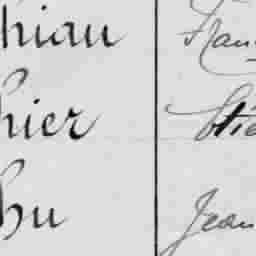 hiau Fran
hier Etie
hu Jean